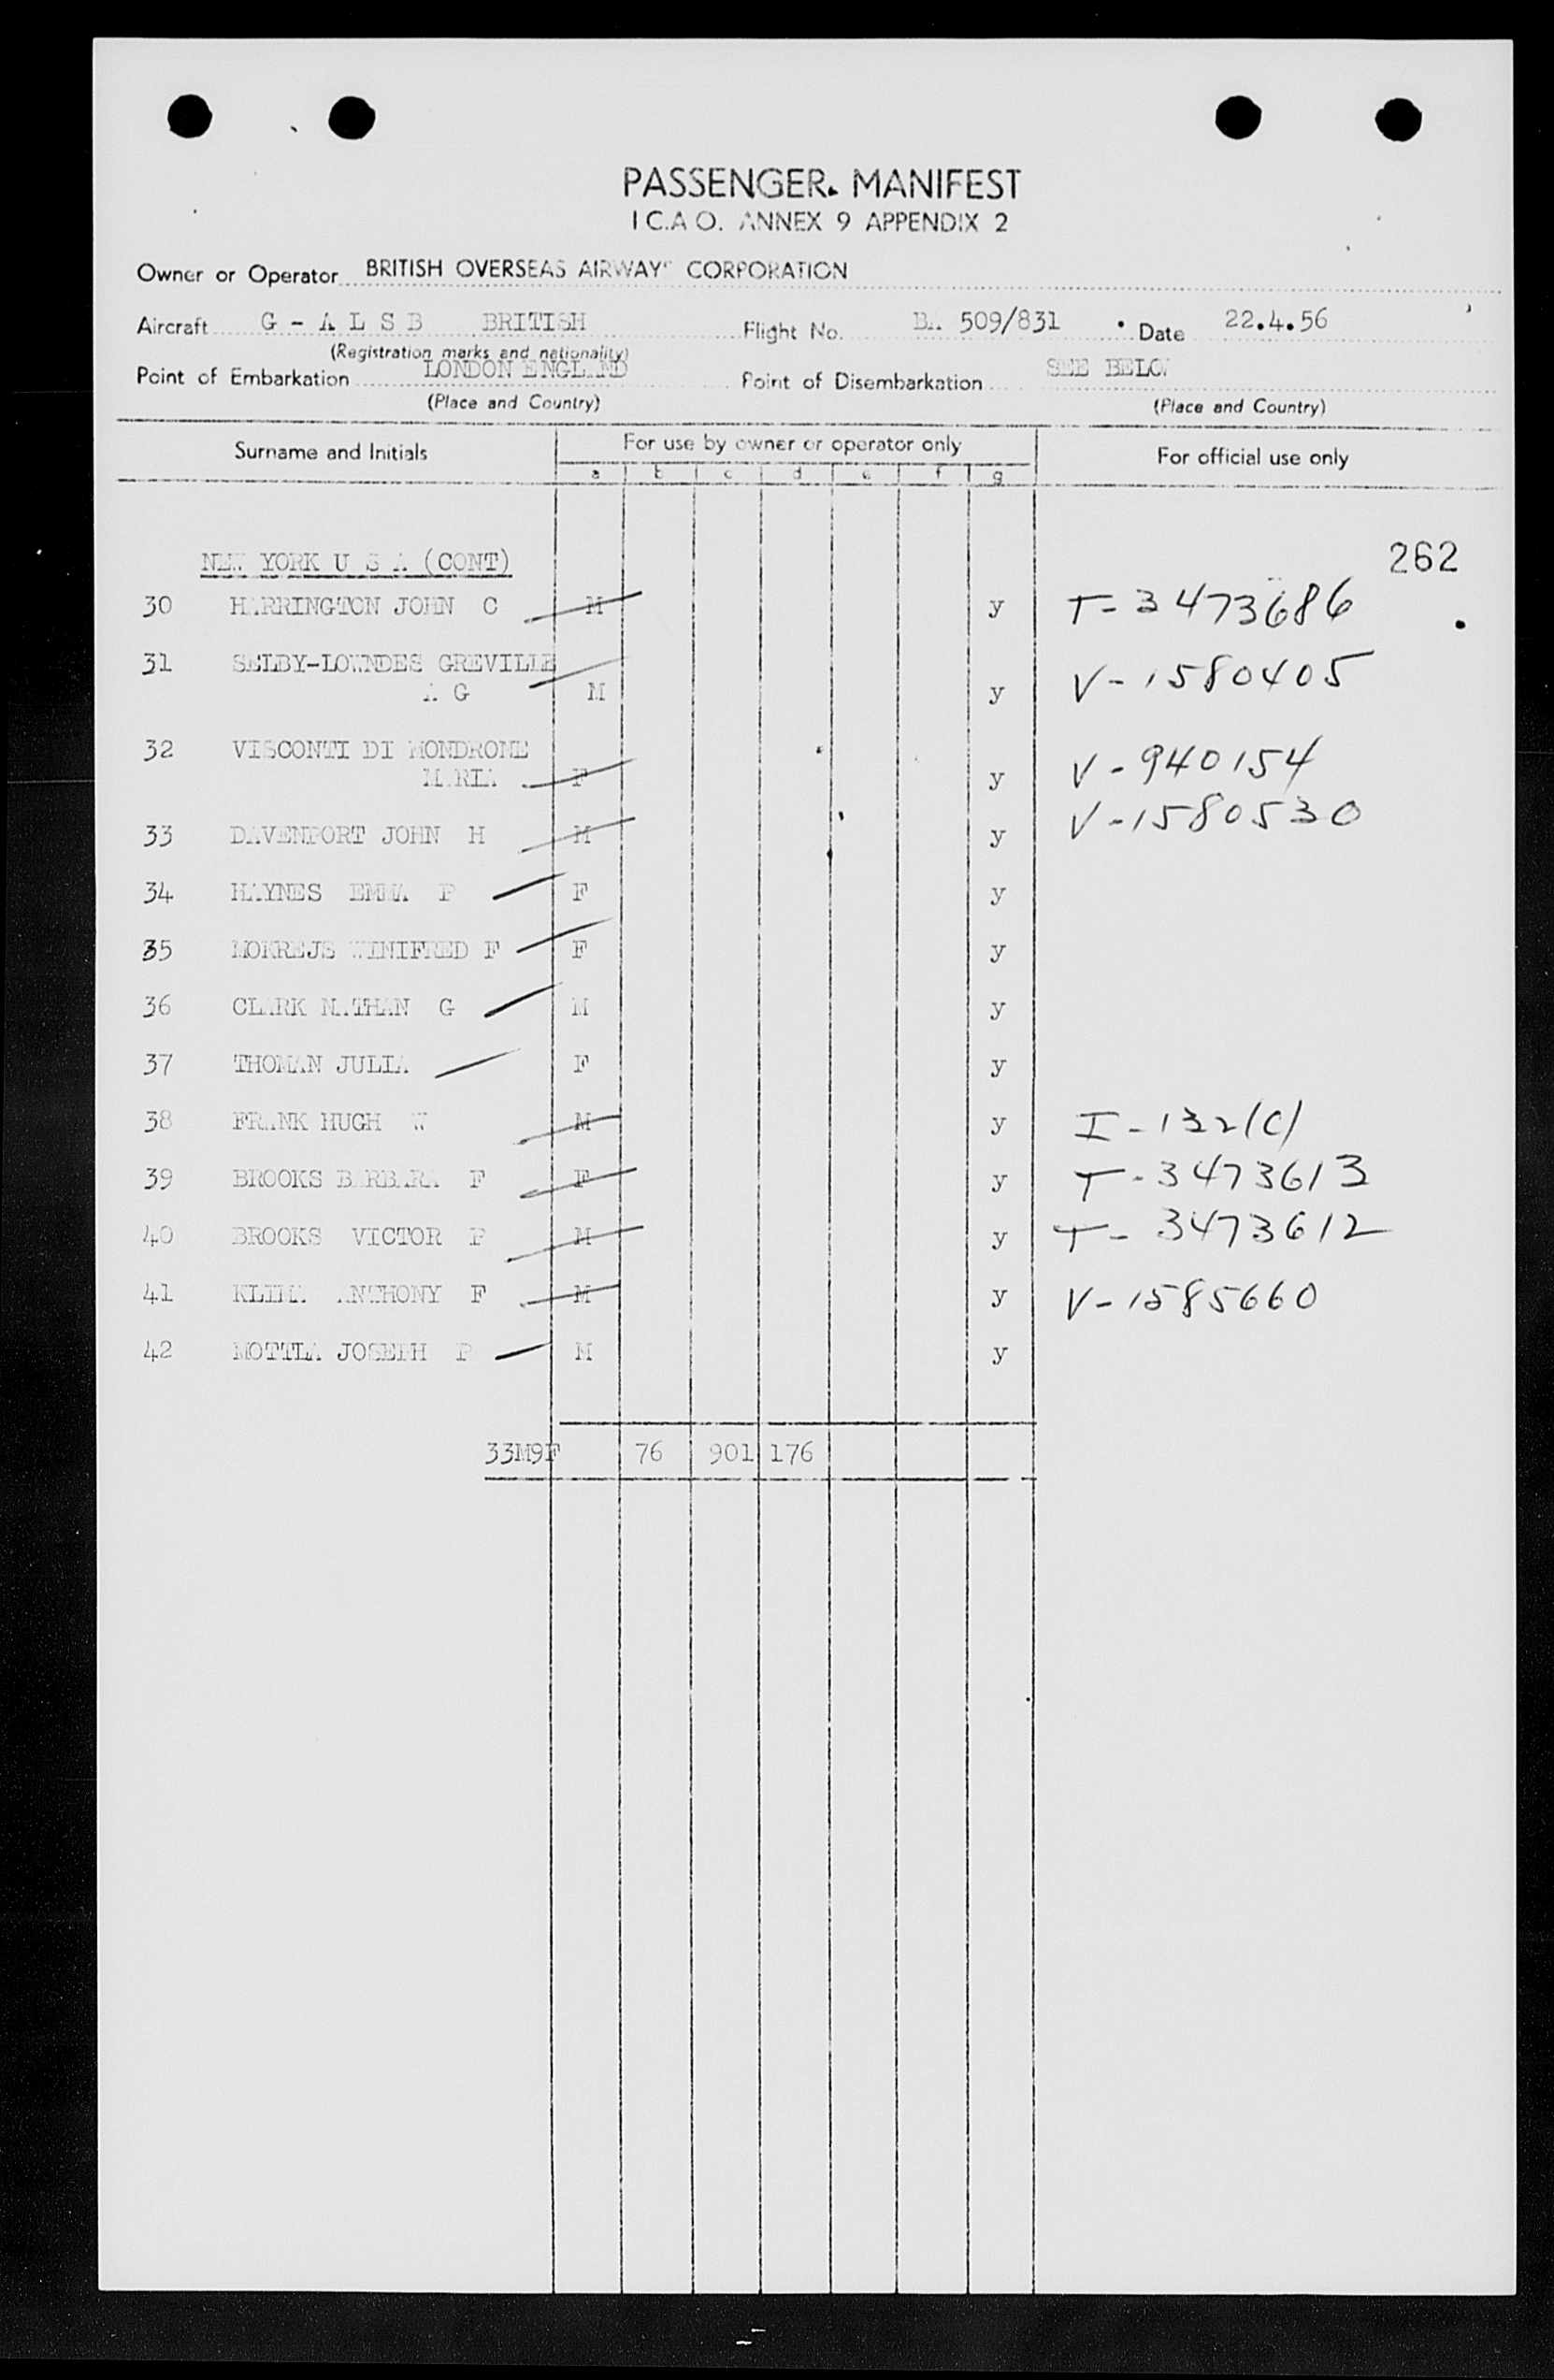 PASSENGER MANIFEST
I C.A O. ANNEX 9 APPENDIX 2
Owner or Operator BRITISH OVERSEAS AIRWAY CORPORATION
Aircraft G - A L S B BRITISH Flight No. BA 509/831 Date 22.4.56
(Registration marks and nationality)
Point of Embarkation LONDON ENGLAND Point of Disembarkation SEE BELOW
(Place and Country) (Place and Country)
Surname and Initials For use by owner or operator only For official use only
a b c d e f g
NEW YORK U S A (CONT) 262
30 HARRINGTON JOHN C M y T-3473686
31 SELBY-LOWNDES GREVILLE
A G M y V-1580405
32 VISCONTI DI MONDRONE
MARIA F y V-940154
33 DAVENPORT JOHN H M y V-1580530
34 HAYNES EMMA P F y
35 MOKREJS WINIFRED F F y
36 CLARK NATHAN G M y
37 THOMAN JULIA F y
38 FRANK HUGH W M y I-132(C)
39 BROOKS BARBARA F F y T-3473613
40 BROOKS VICTOR F M y T-3473612
41 KLIMA ANTHONY F M y V-1585660
42 MOTTLA JOSEPH P M y
33M9F 76 901 176